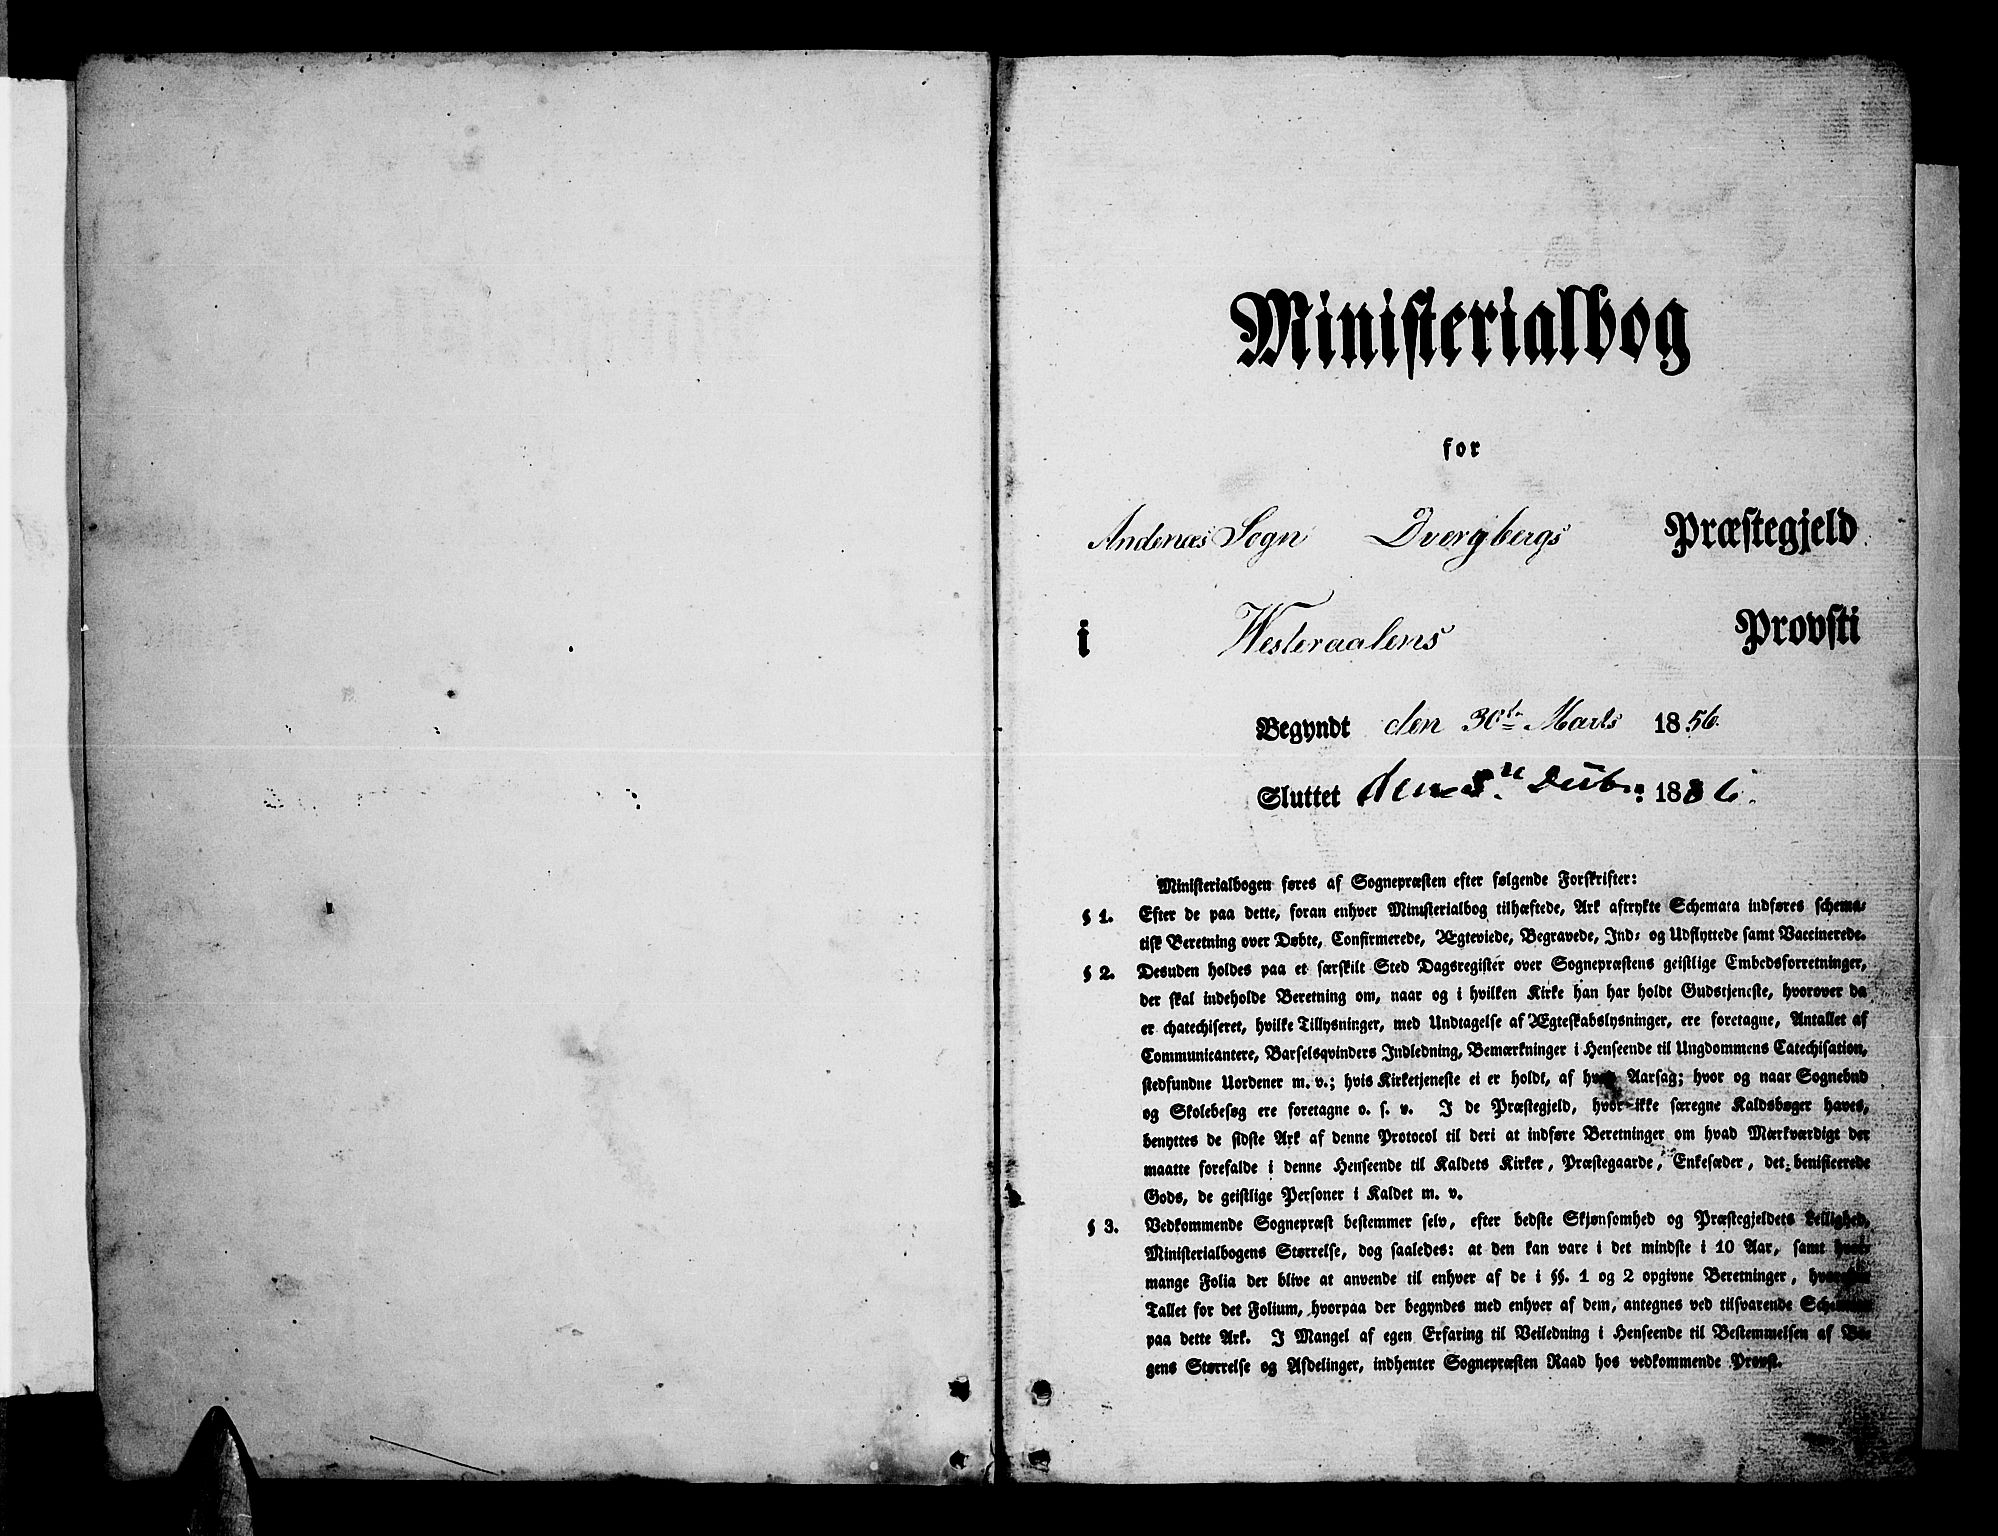 Ministerialbog
for
Andenæs Sogn Dverg­bergs Præstegjeld
i Westeraalens Provsti
Begyndt den 30te Marts 1856.
Sluttet den 1886.
Ministerialbogen føres af Sognepræsten efter følgende Forskrifter:
§ 1. Efter de paa dette, foran enhver Ministerialbog tilhæftede, Ark aftrykte Schemata indføres schema-
tisk Beretning over Døbte, Confirmerede, Ægteviede, Begravede, Ind- og Udflyttede samt Vaccinerede.
§ 2. Desuden holdes paa et særskilt Sted Dagsregister over Sognepræstens geistlige Embedsforretninger,
der skal indeholde Beretning om, naar og i hvilken Kirke han har holdt Gudstjeneste, hvorover da
er chatechiseret, hvilke Tillysninger, med Undtagelse af Ægteskabslysninger, ere foretagne, Antallet af
Communicantere, Barselqvinders Indledning, Bemærkninger i Henseende til Ungdommens Catechisation,
stedfundne Uordener m. v.; hvis Kirketjeneste ei er holdt, af hvad Aarsag; hvor og naar Sognebud
og Skolebesøg ere foretagne o. s. v. I de Præstegjeld, hvor ikke særegne Kaldsbøger haves,
benyttes de sidste Ark af denne Protocol til deri at indføre Beretninger om hvad Mærkværdigt der
maatte forefalde i denne Henseende til Kaldets Kirker, Præstegaarde, Enkesæder, det benificerede
Gods, de geistlige Personer i Kaldet m. v.
§ 3. Vedkommende Sognepræst bestemmer selv, efter bedste Skjønsomhed og Præstegjeldets Leilighed,
Ministerialbogens Størrelse, dog saaledes: at den kan vare i det mindste i 10 Aar, samt hvor
mange Folia der blive at anvende til enhver af de i §§. 1 og 2 opgivne Beretninger,
Tallet for det Folium, hvorpaa der begyndes med enhver af dem, antegnes ved tilsvarende Schemata
paa dette Ark. I Mangel af egen Erfaring til Veiledning i Henseende til Bestemmelsen af Bo-
gens Størrelse og Afdelinger, indhenter Sognepræsten Raad hos vedkommende Provst.